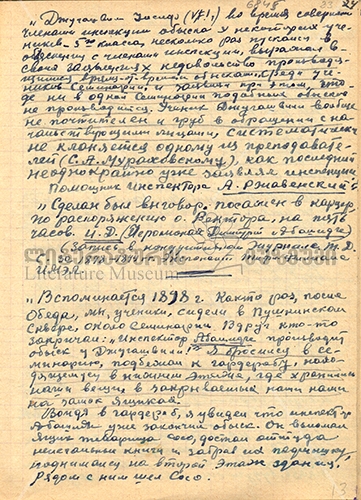 6848
33 24
„Джугашвили Иосиф (VI, 1) во время совершения
членами инспекции обыска у некоторых уче-
ников 5-го класса, несколько раз пускался в
объяснения с членами инспекции, выражая в
своих заявлениях недовольство производя-
щимися время от времени обысками среди уче-
ников Семинарии и заявил при этом, что-
де ни в одной Семинарии подобных обысков
не производится. Ученик Джугашвили вообще
не почтителен и груб в обращении с на-
чальствующими лицами, систематически
не кланяется одному из преподавате-
лей (С. А. Мураховскому), как последний
неоднократно уже заявлял инспекции.
Помощник инспектора А. Ржавенский"
„Сделан был выговор. Посажен в карцер
по распоряжению о. Ректора, на пять
часов. И. Д. (Иеромонах Димитрий Абашидзе)
(Запись в кондуитном журнале Т. Д.
Literature Museum
„Вспоминается 1898 г. Как-то раз, после
обеда, мы, ученики, сидели в Пушкинском
сквере, около Семинарии. Вдруг кто-то
закричал: „Инспектор Абашидзе производит
обыск у Джугашвили!" Я бросился в се-
минарию, подбежал к гардеробу, нахо-
дящемуся в нижнем этаже, где хранились
наши вещи в закрываемых нами
на замок ящиках.
Войдя в гардероб, я увидел что инспектор
Абашидзе уже закончил обыск. Он взломал
ящик товарища Сосо, достал оттуда
нелегальные книги и забрав их подмышку
поднимался на второй этаж здания,
Рядом с ним шел Сосо.
13